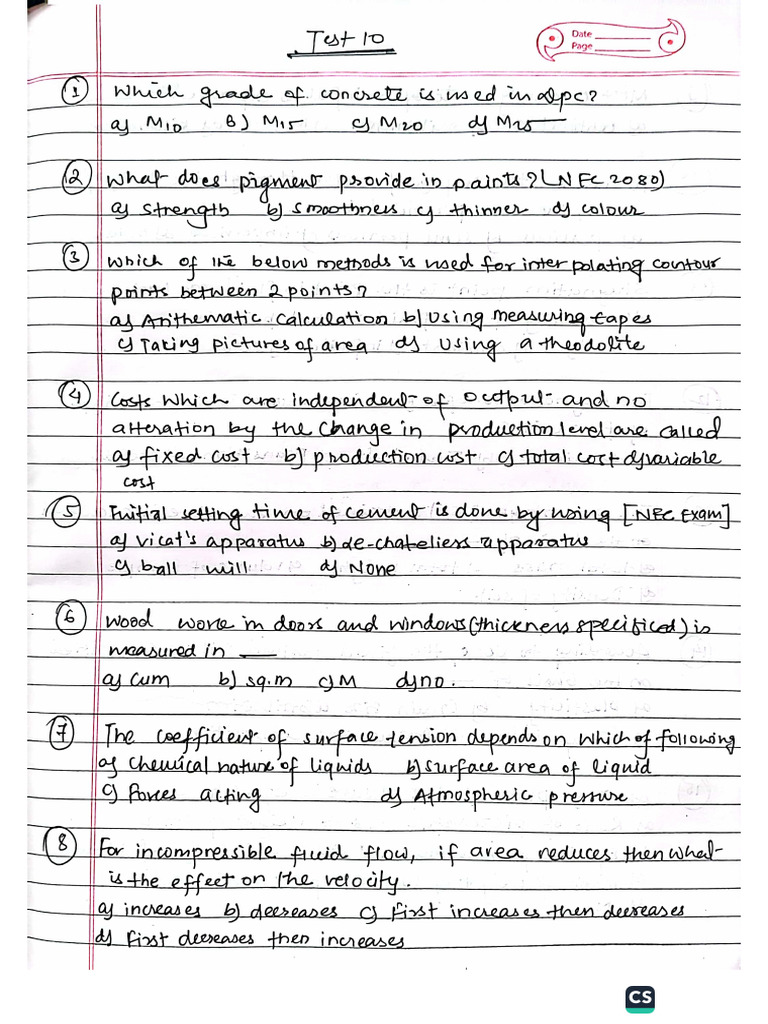 Test 10
Date
Page
1 Which grade of concrete is used in DPC?
a) M10 B) M15 c) M20 d) M25
2 What does pigment provide in paints? (NEC 2080)
a) strength b) smoothness c) thinner d) colour
3 Which of the below methods is used for interpolating contour
points between 2 points?
a) Arithematic calculation b) Using measuring tapes
c) Taking pictures of area d) Using a theodolite
4 Costs which are independent of output and no
alteration by the change in production level are called
a) fixed cost b) production cost c) total cost d) variable
cost
5 Initial setting time of cement is done by using [NEC Exam]
a) vicat's apparatus b) de-chateliers apparatus
c) ball mill d) None
6 Wood work in doors and windows (thickness specificed) is
measured in __
a) cum b) sq.m c) M d) no.
7 The coefficient of surface tension depends on which of following
a) Chemical nature of liquids b) surface area of liquid
c) Forces acting d) Atmospheric pressure
8 For incompressible fluid flow, if area reduces then what
is the effect on the velocity.
a) increases b) decreases c) first increases then decreases
d) first decreases then increases
CS